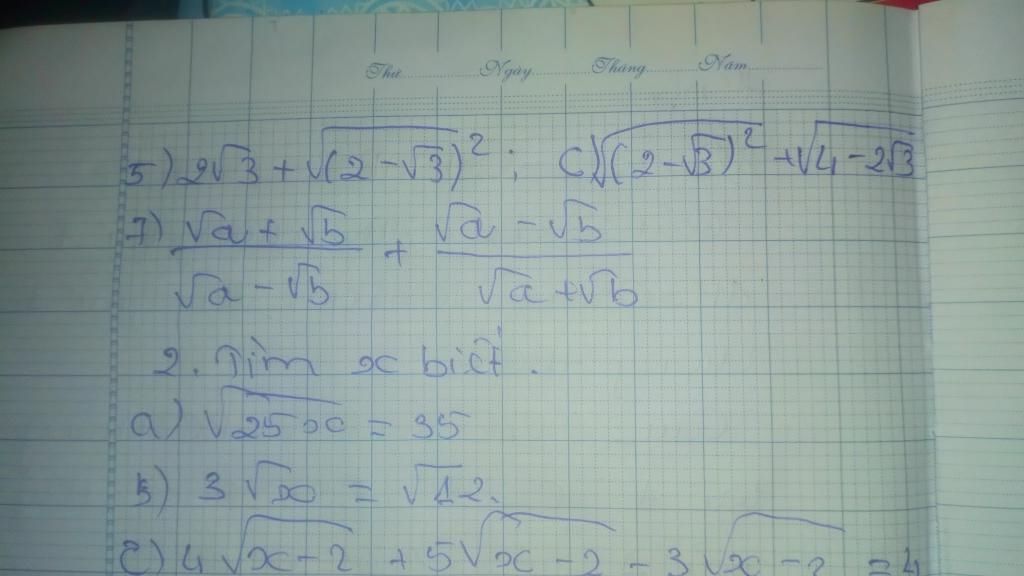 Thứ Ngày Tháng Năm
5) 2√3 + √(2 - √3)²; C) √(2 - √3)² + √4 - 2√3
7) √a + √b / √a - √b + √a - √b / √a + √b
2. Tìm x biết.
a) √25x = 35
b) 3√x = √12.
c) 4√x - 2 + 5√x - 2 - 3√x - 2 = 4